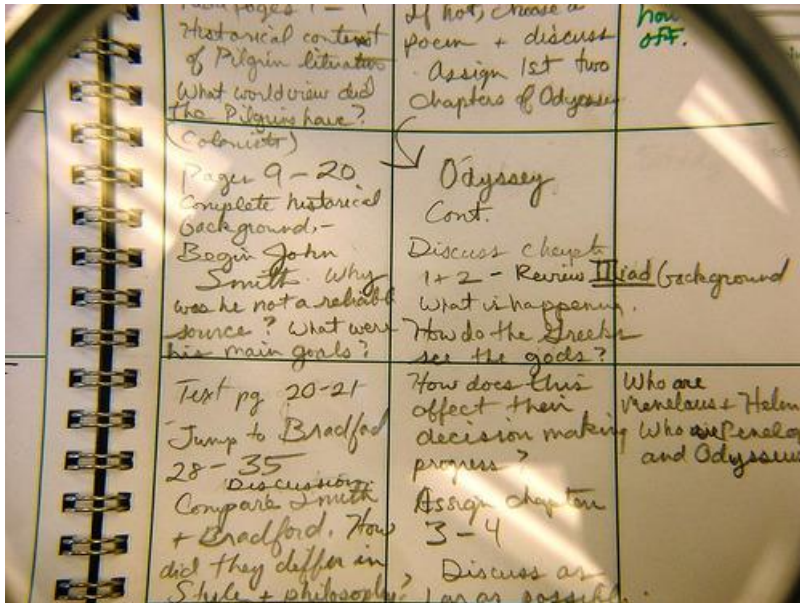 pages 1 -
Historical context
of Pilgrim literature
What worldview did
the Pilgrims have?
(Colonists)
Pages 9 - 20
Complete historical
background,-
Begin John
Smith. Why
was he not a reliable
source? What were
his main goals?
Text pg 20-21
Jump to Bradford
28 - 35
Discussion:
Compare Smith
+ Bradford. How
did they differ in
Style + philosophy?
If not, choose a
poem + discuss
Assign 1st two
chapters of Odyssey
Odyssey
Cont.
Discuss chapts
1 + 2 - Review Iliad background
What is happening.
How do the Greeks
see the gods?
How does this
affect their
decision making
progress?
Assign chapters
3 - 4
Discuss as
far as possible.
how
off.
Who are
Menelaus + Helen
Who are Penelop
and Odysseus